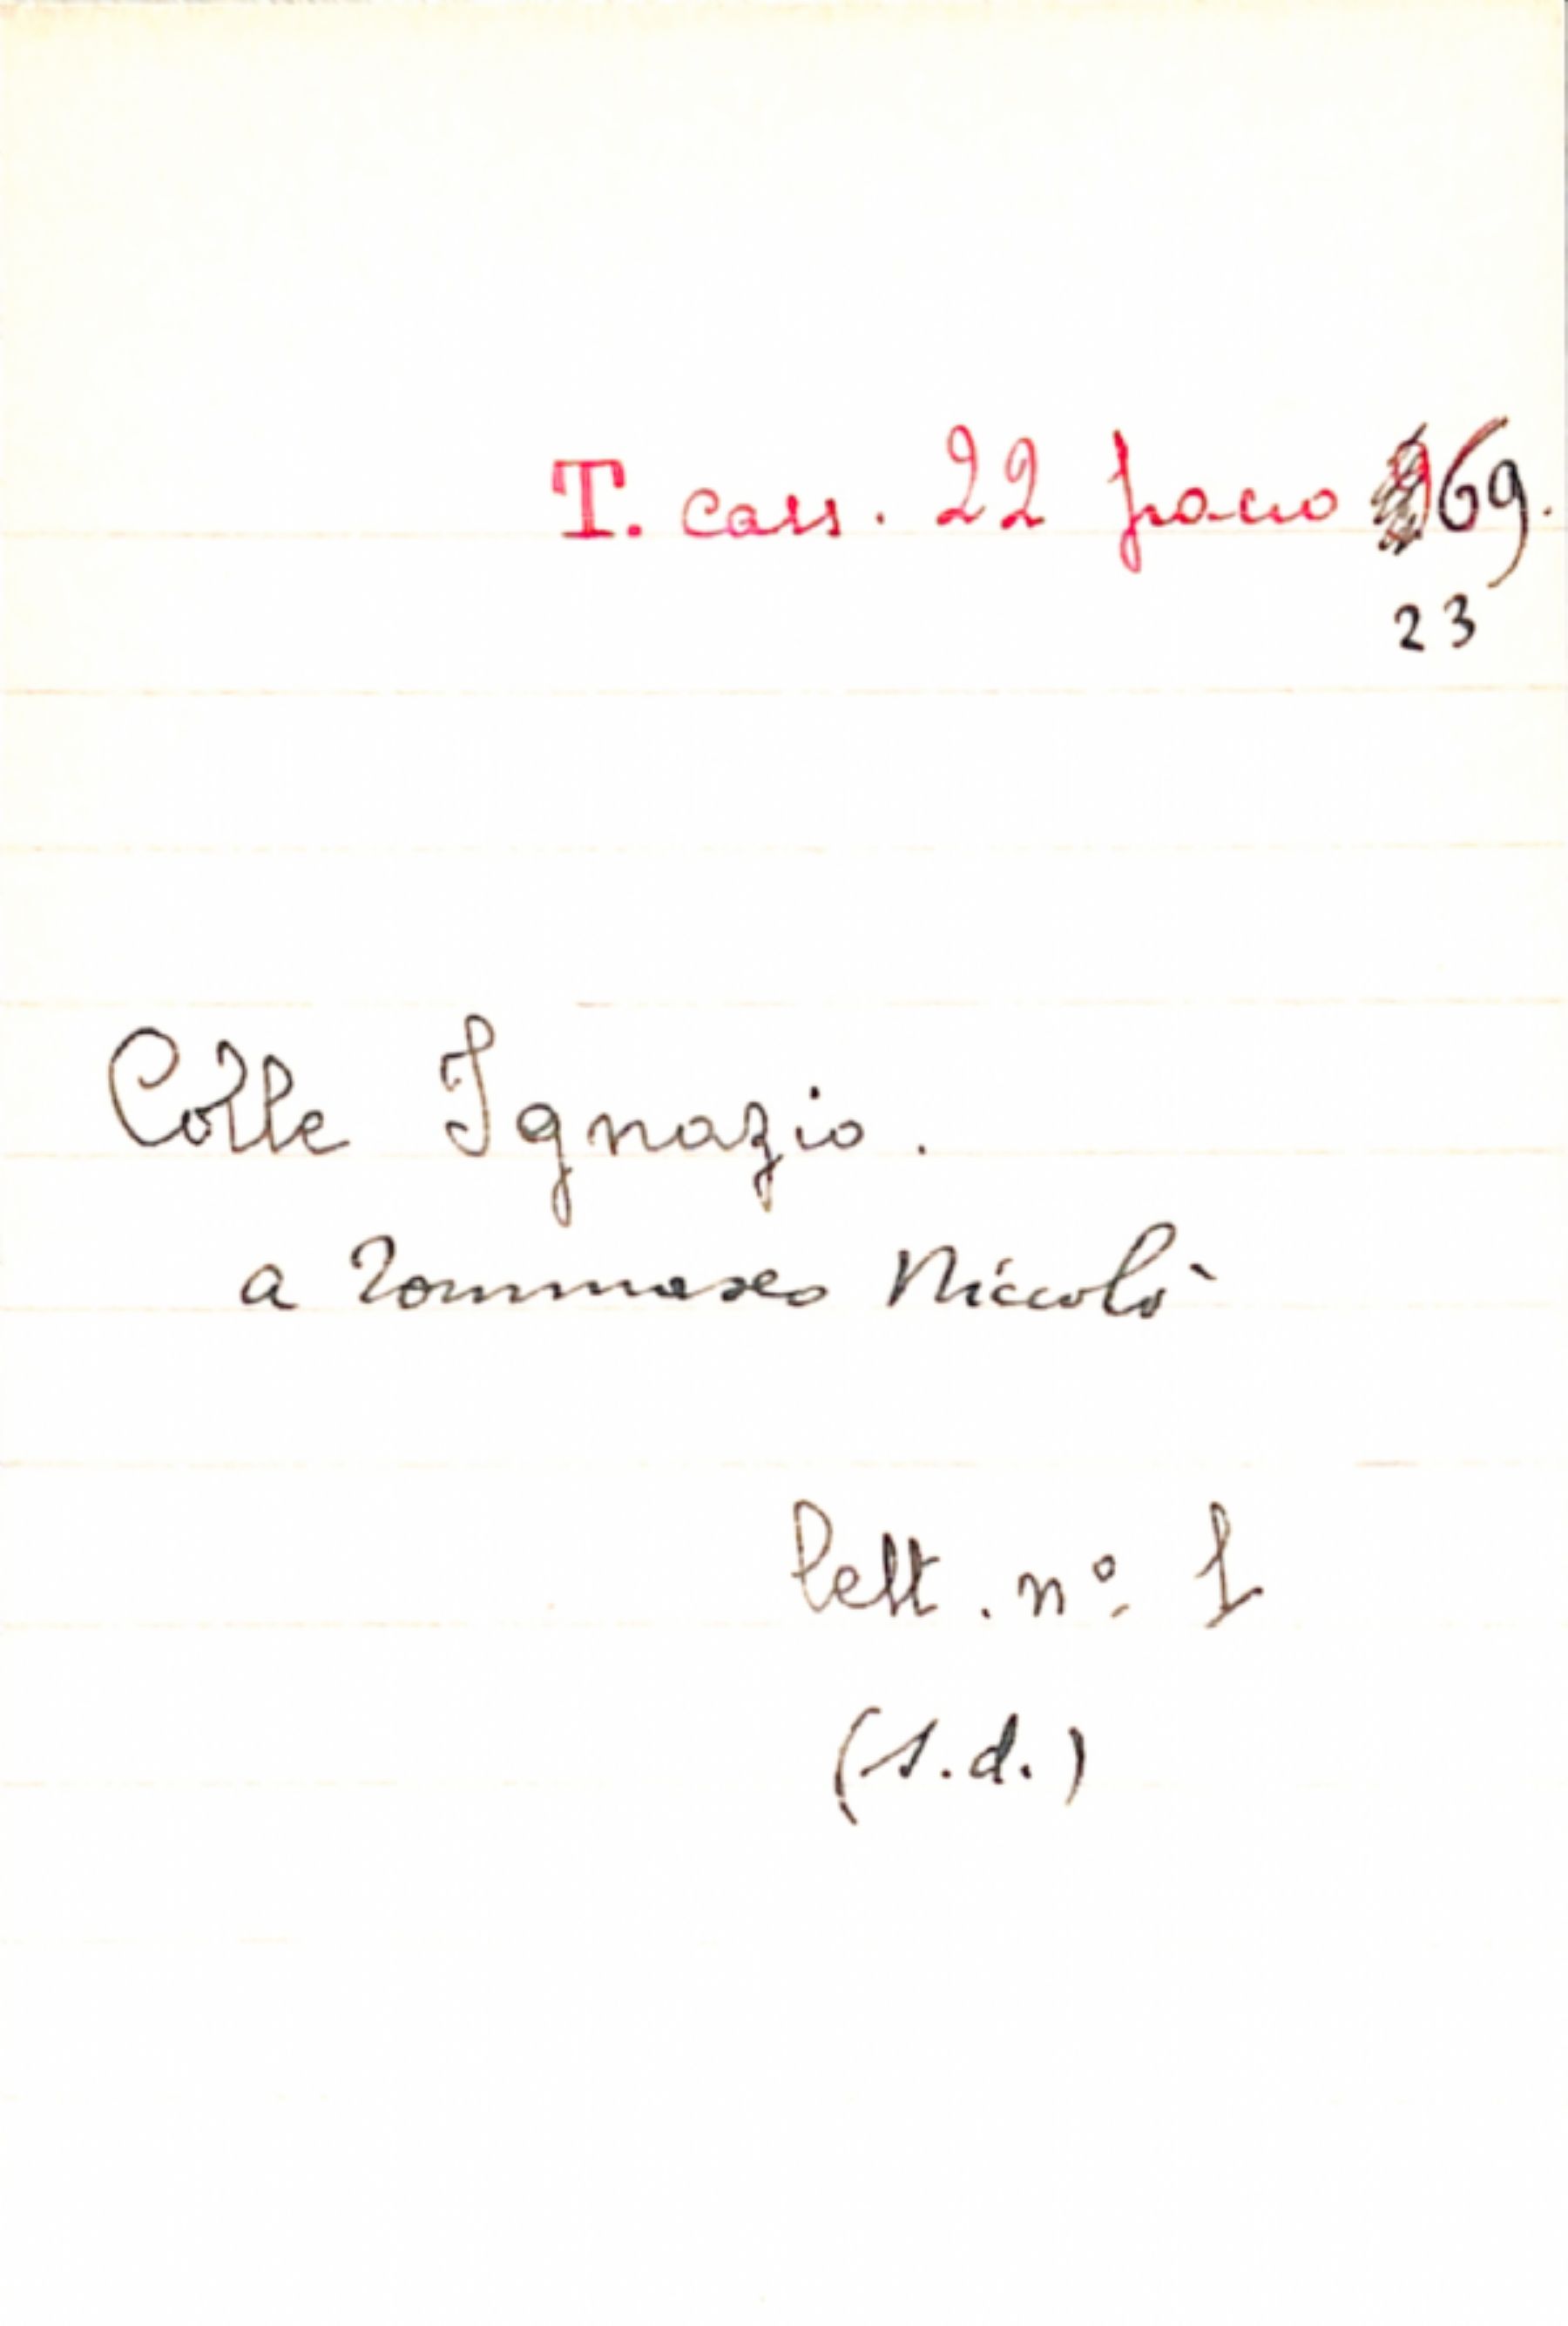 T. cass. 22 fascio 69.
23
Colle Ignazio.
a Tommaseo Niccolò
lett. nº 1
(s.d.)